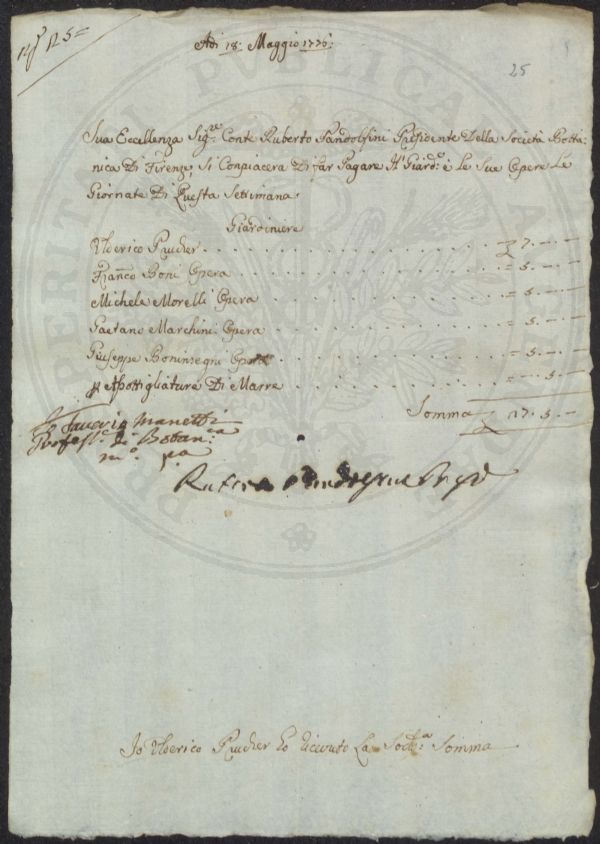 N° 125=
Adi 18: Maggio 1776:
25
Sua Eccellenza Sig.re Conte Ruberto Pandolfini Presidente Della Società Botta:
nica Di Firenze, Si Conpiacera Di far Pagare Il Giard.e e le Sue Opere Le
Giornate Di Questa Settimana
Giardiniere
Ulderico Prucher . . . 7. — —
Franco Boni Opera . . . = 5. — —
Michele Morelli Opera . . . = 5. — —
Gaetano Marchini Opera . . . = 5. — —
Giuseppe Boninsegni Opera . . . = 5. — —
p Assottigliature Di Marre . . . — 5. —
Somma 27. 5. —
Saverio Manetti
Profess.e di Botan:ca
m.o pa
Jo Ulderico Prucher ho ricevuto La Sod.a Somma